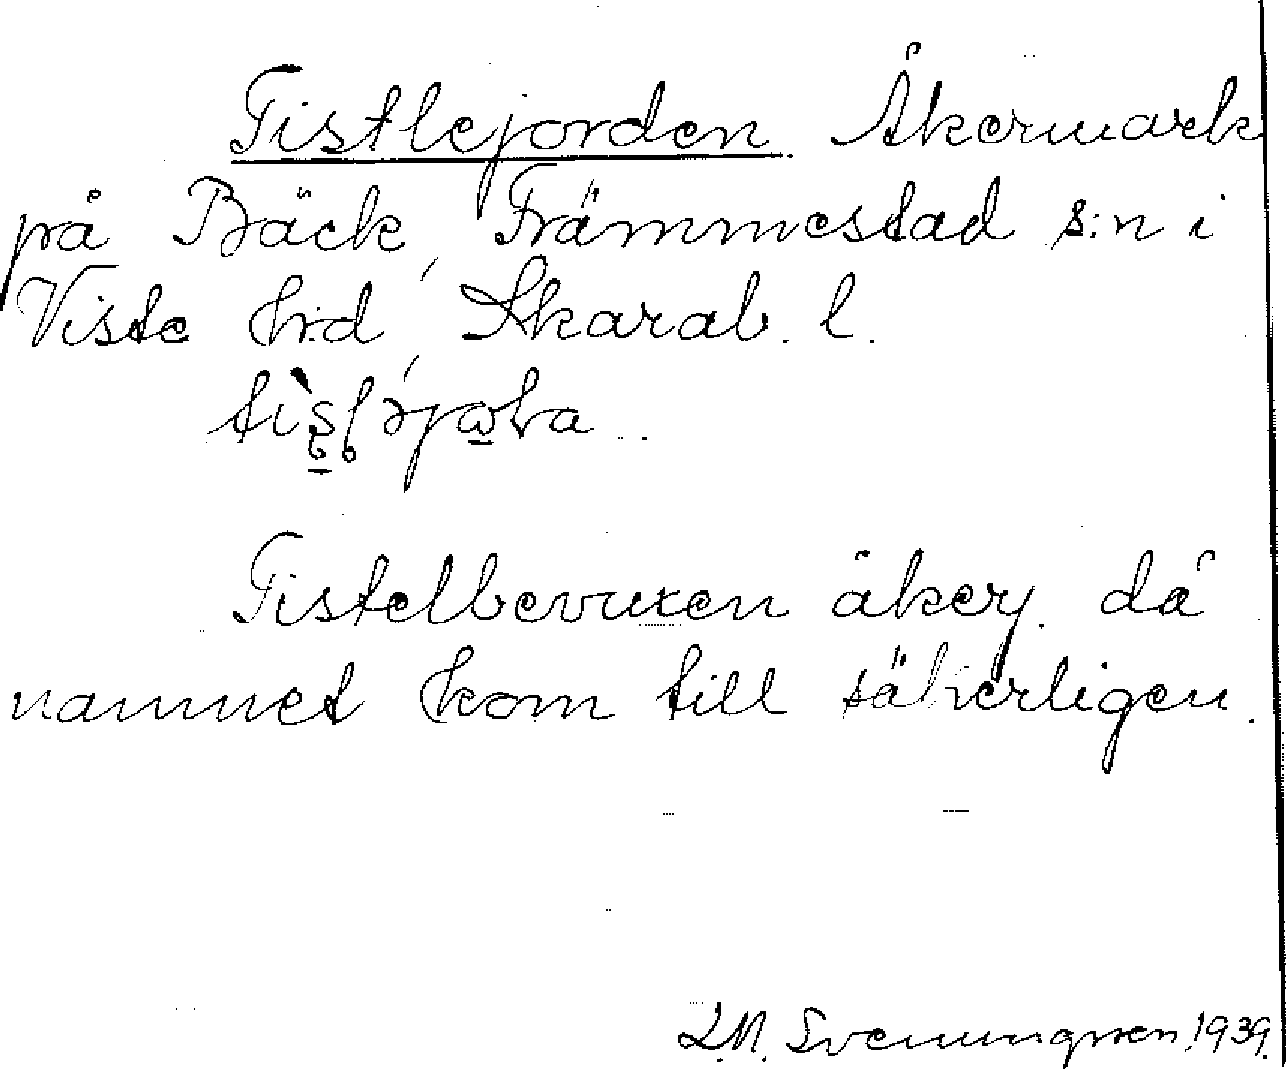 Tistlejorden Åkermark
på Bäck, Främmestad s:n i
Viste hd, Skarab. l.
Tistelbevuxen åker, då
namnet kom till säkerligen.
L.M. Svenungsson. 1939.